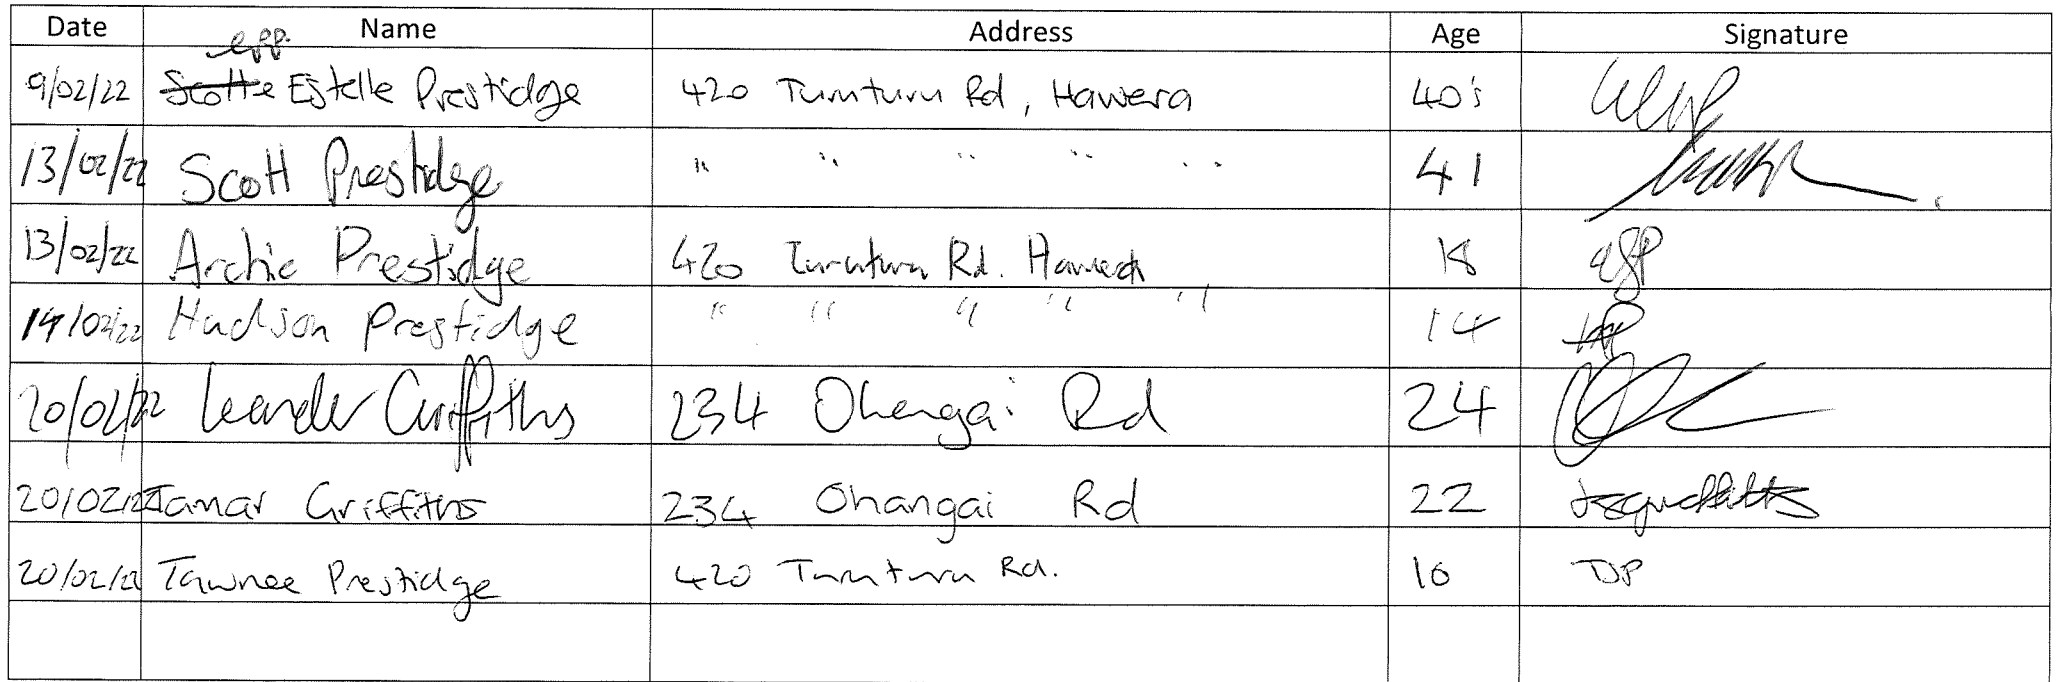 Date Name Address Age Signature
epp.
9/02/22 Scott Estelle Prestidge 420 Turuturu Rd, Hawera 40's
13/02/22 Scott Prestidge " " " " " 41
13/02/22 Archie Prestidge 420 Turuturu Rd. Hawera 18
14/02/22 Hudson Prestidge " " " " " 14 HP
20/02/22 Leander Griffiths 234 Ohangai Rd 24
20/02/22 Tamar Griffiths 234 Ohangai Rd 22
20/02/22 Tawnee Prestidge 420 Turuturu Rd. 16 TJP